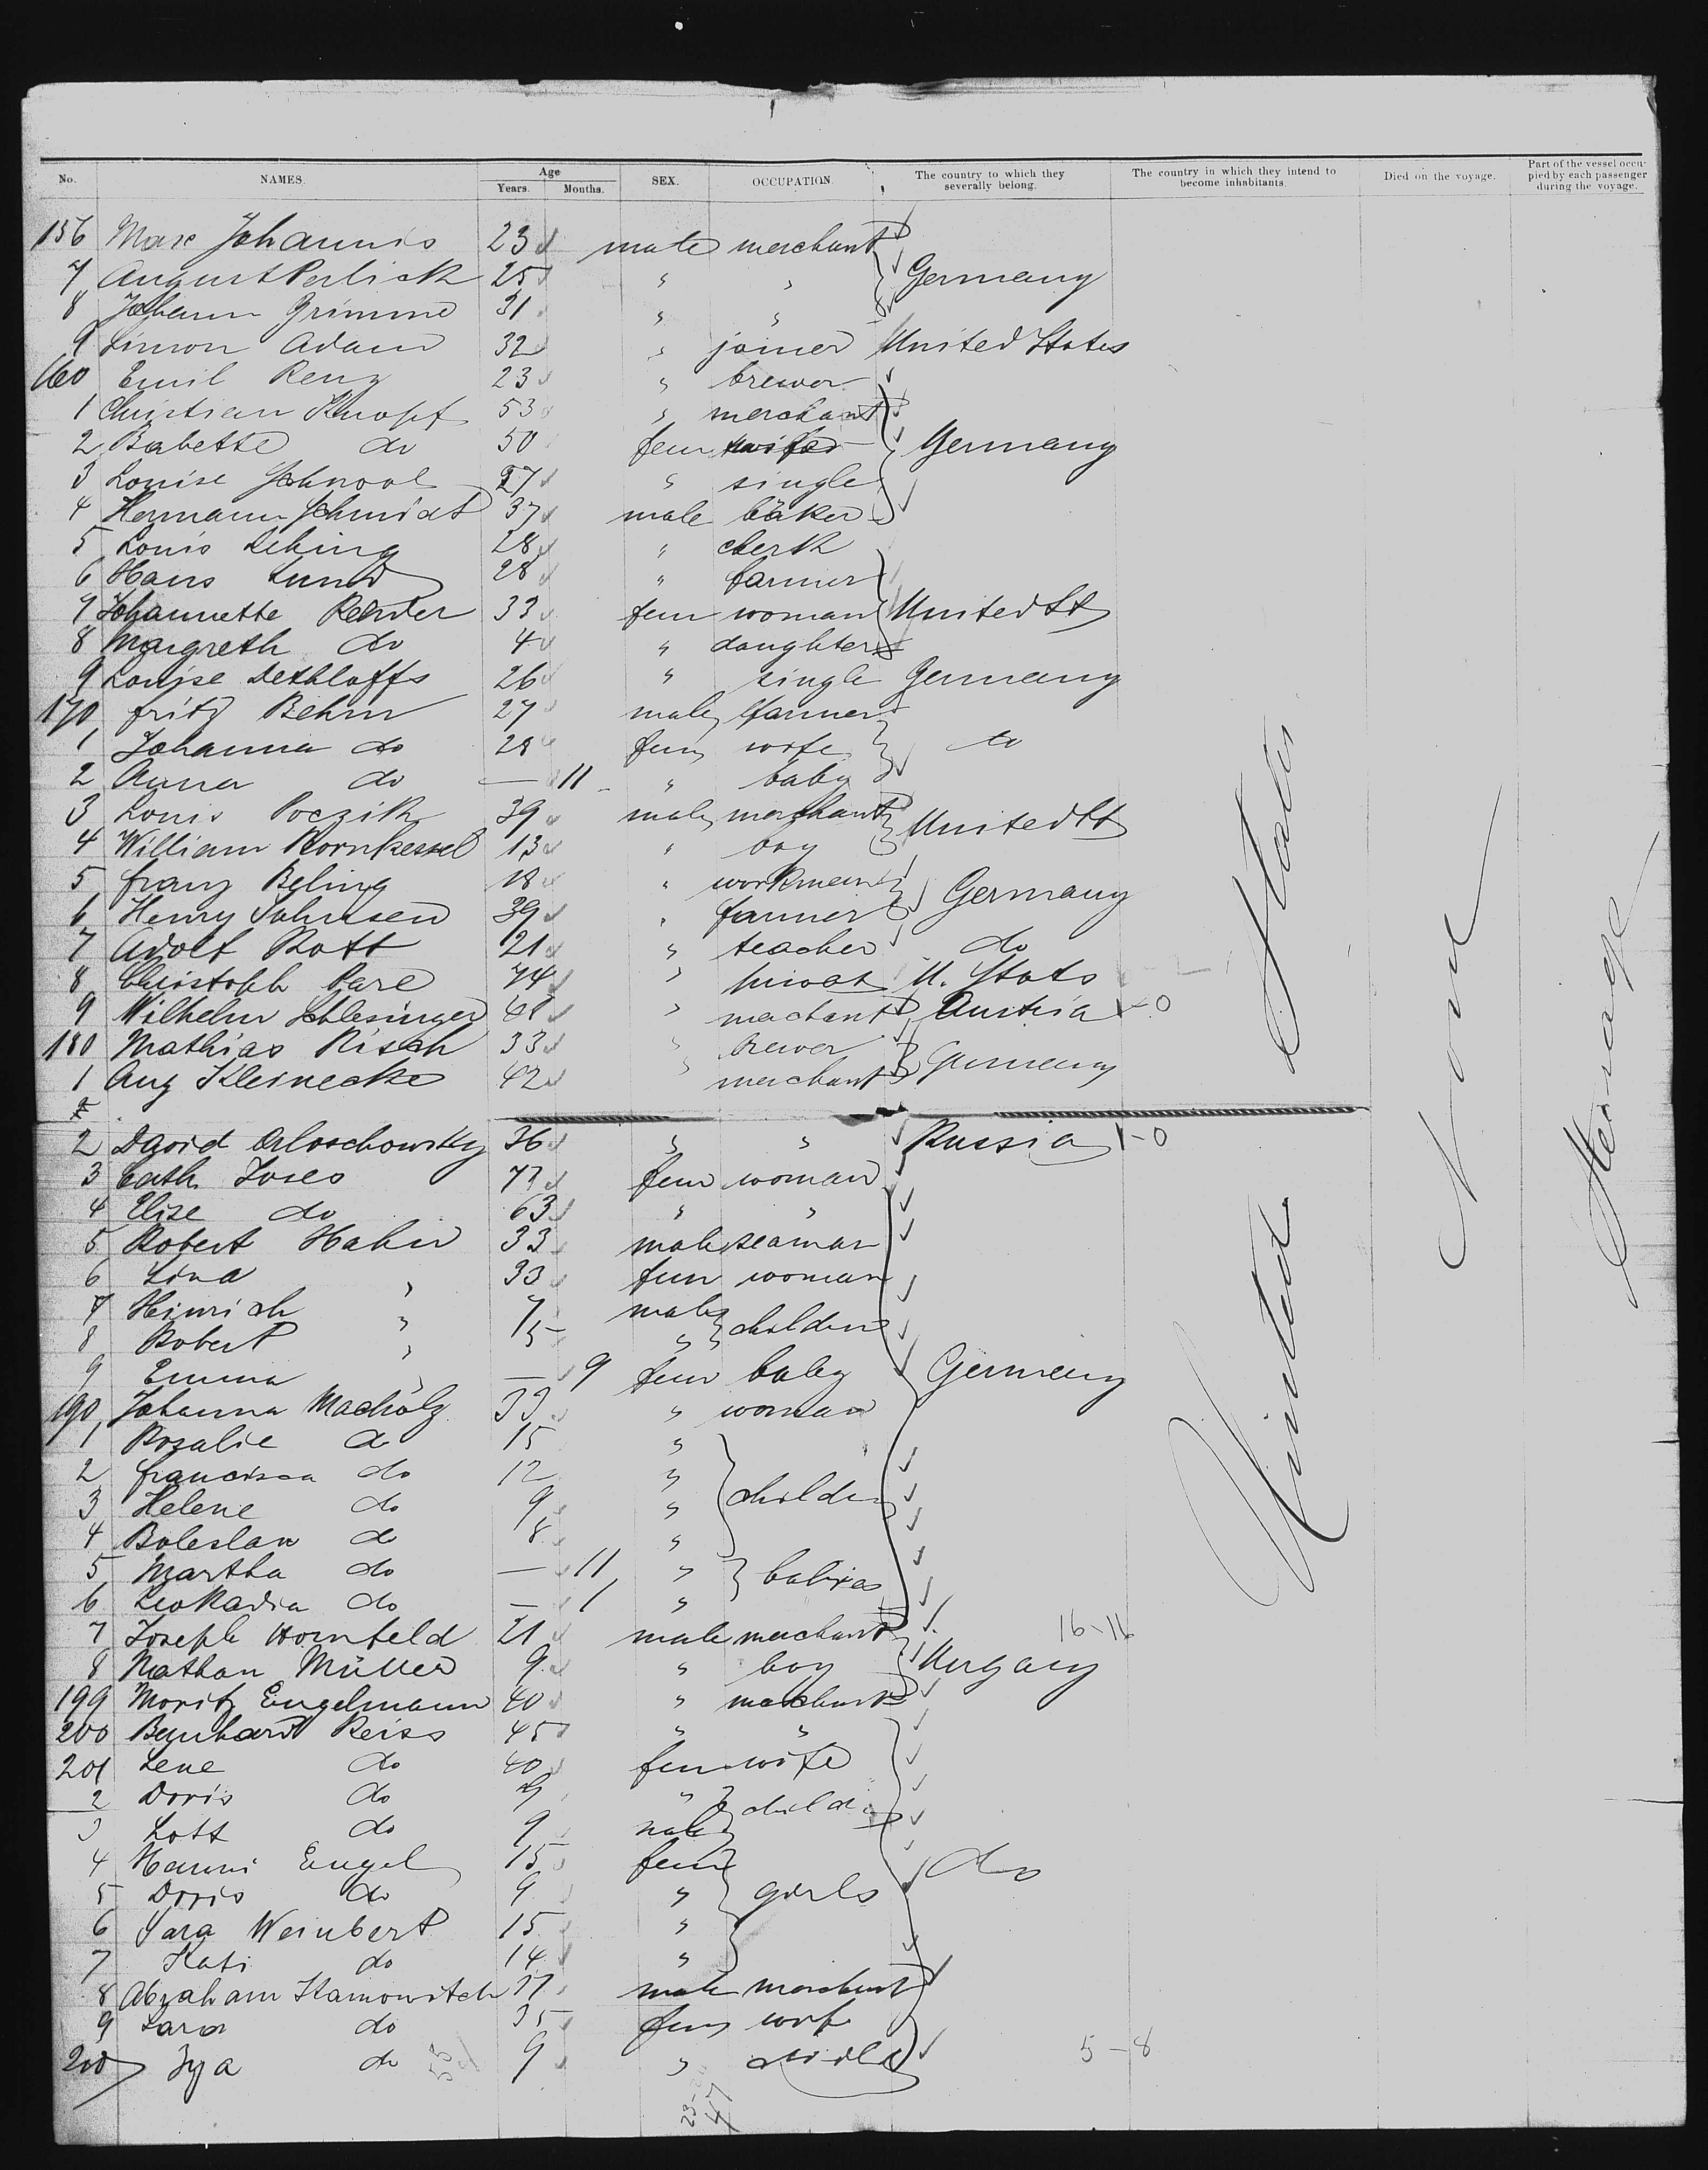 No. NAMES. Age Years. Months. SEX. OCCUPATION. The country to which they severally belong. The country in which they intend to become inhabitants. Died on the voyage. Part of the vessel occupied by each passenger during the voyage.
156 Max Johannis 23 male merchant
7 August Perlick 25 " " Germany
8 Johann Grimme 31 " "
9 Simon Adam 32 " joiner United States
160 Emil Renz 23 " brewer
1 Christian Knopf 53 " merchant
2 Babette do 50 fem wife Germany
3 Louise 27 " single
4 Hermann Schmidt 37 male bäker
5 Louis 28 " clerk
6 Hans Lund 28 " farmer
7 Johannette 33 fem woman United St
8 Margreth do 4 " daughter
9 Louise Dethloffs 26 " single Germany
170 fritz Behm 27 male farmer
1 Johanna do 28 fem wife do
2 Anna do — 11 " baby
3 Louis Poczik 39 male merchant United St
4 William Kornkessel 13 " boy
5 franz Beling 18 " workman Germany
6 Henry Johnsen 39 " farmer
7 Adolf Rott 21 " teacher do
8 Christoph 74 " privat U. Stats
9 Wilhelm Schlesinger 48 " merchant Austria 1-0
180 Mathias Risch 33 " brewer Germany
1 Aug Kleinecke 42 " merchant
2 David Orloschowsky 36 " " Russia 1-0
3 Cath. Joses 73 fem woman
4 Elise do 63 " "
5 Robert Hahn 33 male seaman
6 Lina " 33 fem woman
7 Heinrich " 7 male
8 Robert " 5 " children
9 Emma " — 9 fem baby Germany
190 Johanna Macholz 33 " woman
1 Rosalie do 15 "
2 francisca do 12 "
3 Helene do 9 " children
4 Boleslaw do 8 "
5 Martha do — 11 " babies
6 Leokadia do — 1 "
7 Joseph Hornfeld 21 male merchant 16-11
8 Nathan Müller 9 " boy Ungary
199 Moritz Engelmann 40 " merchant
200 Bernhard Reiss 45 " "
201 Lene do 40 fem wife
2 Doris do 9 "
3 Lott do 9 male
4 Hanni Engel 15 fem do
5 Doris do 9 " girls
6 Sara Weinbert 15 "
7 Kati do 14 "
8 Abraham Stamowitch 37 male merchant
9 Sara do 35 fem wife
do 9 " child 5-8
United States
None
Steerage